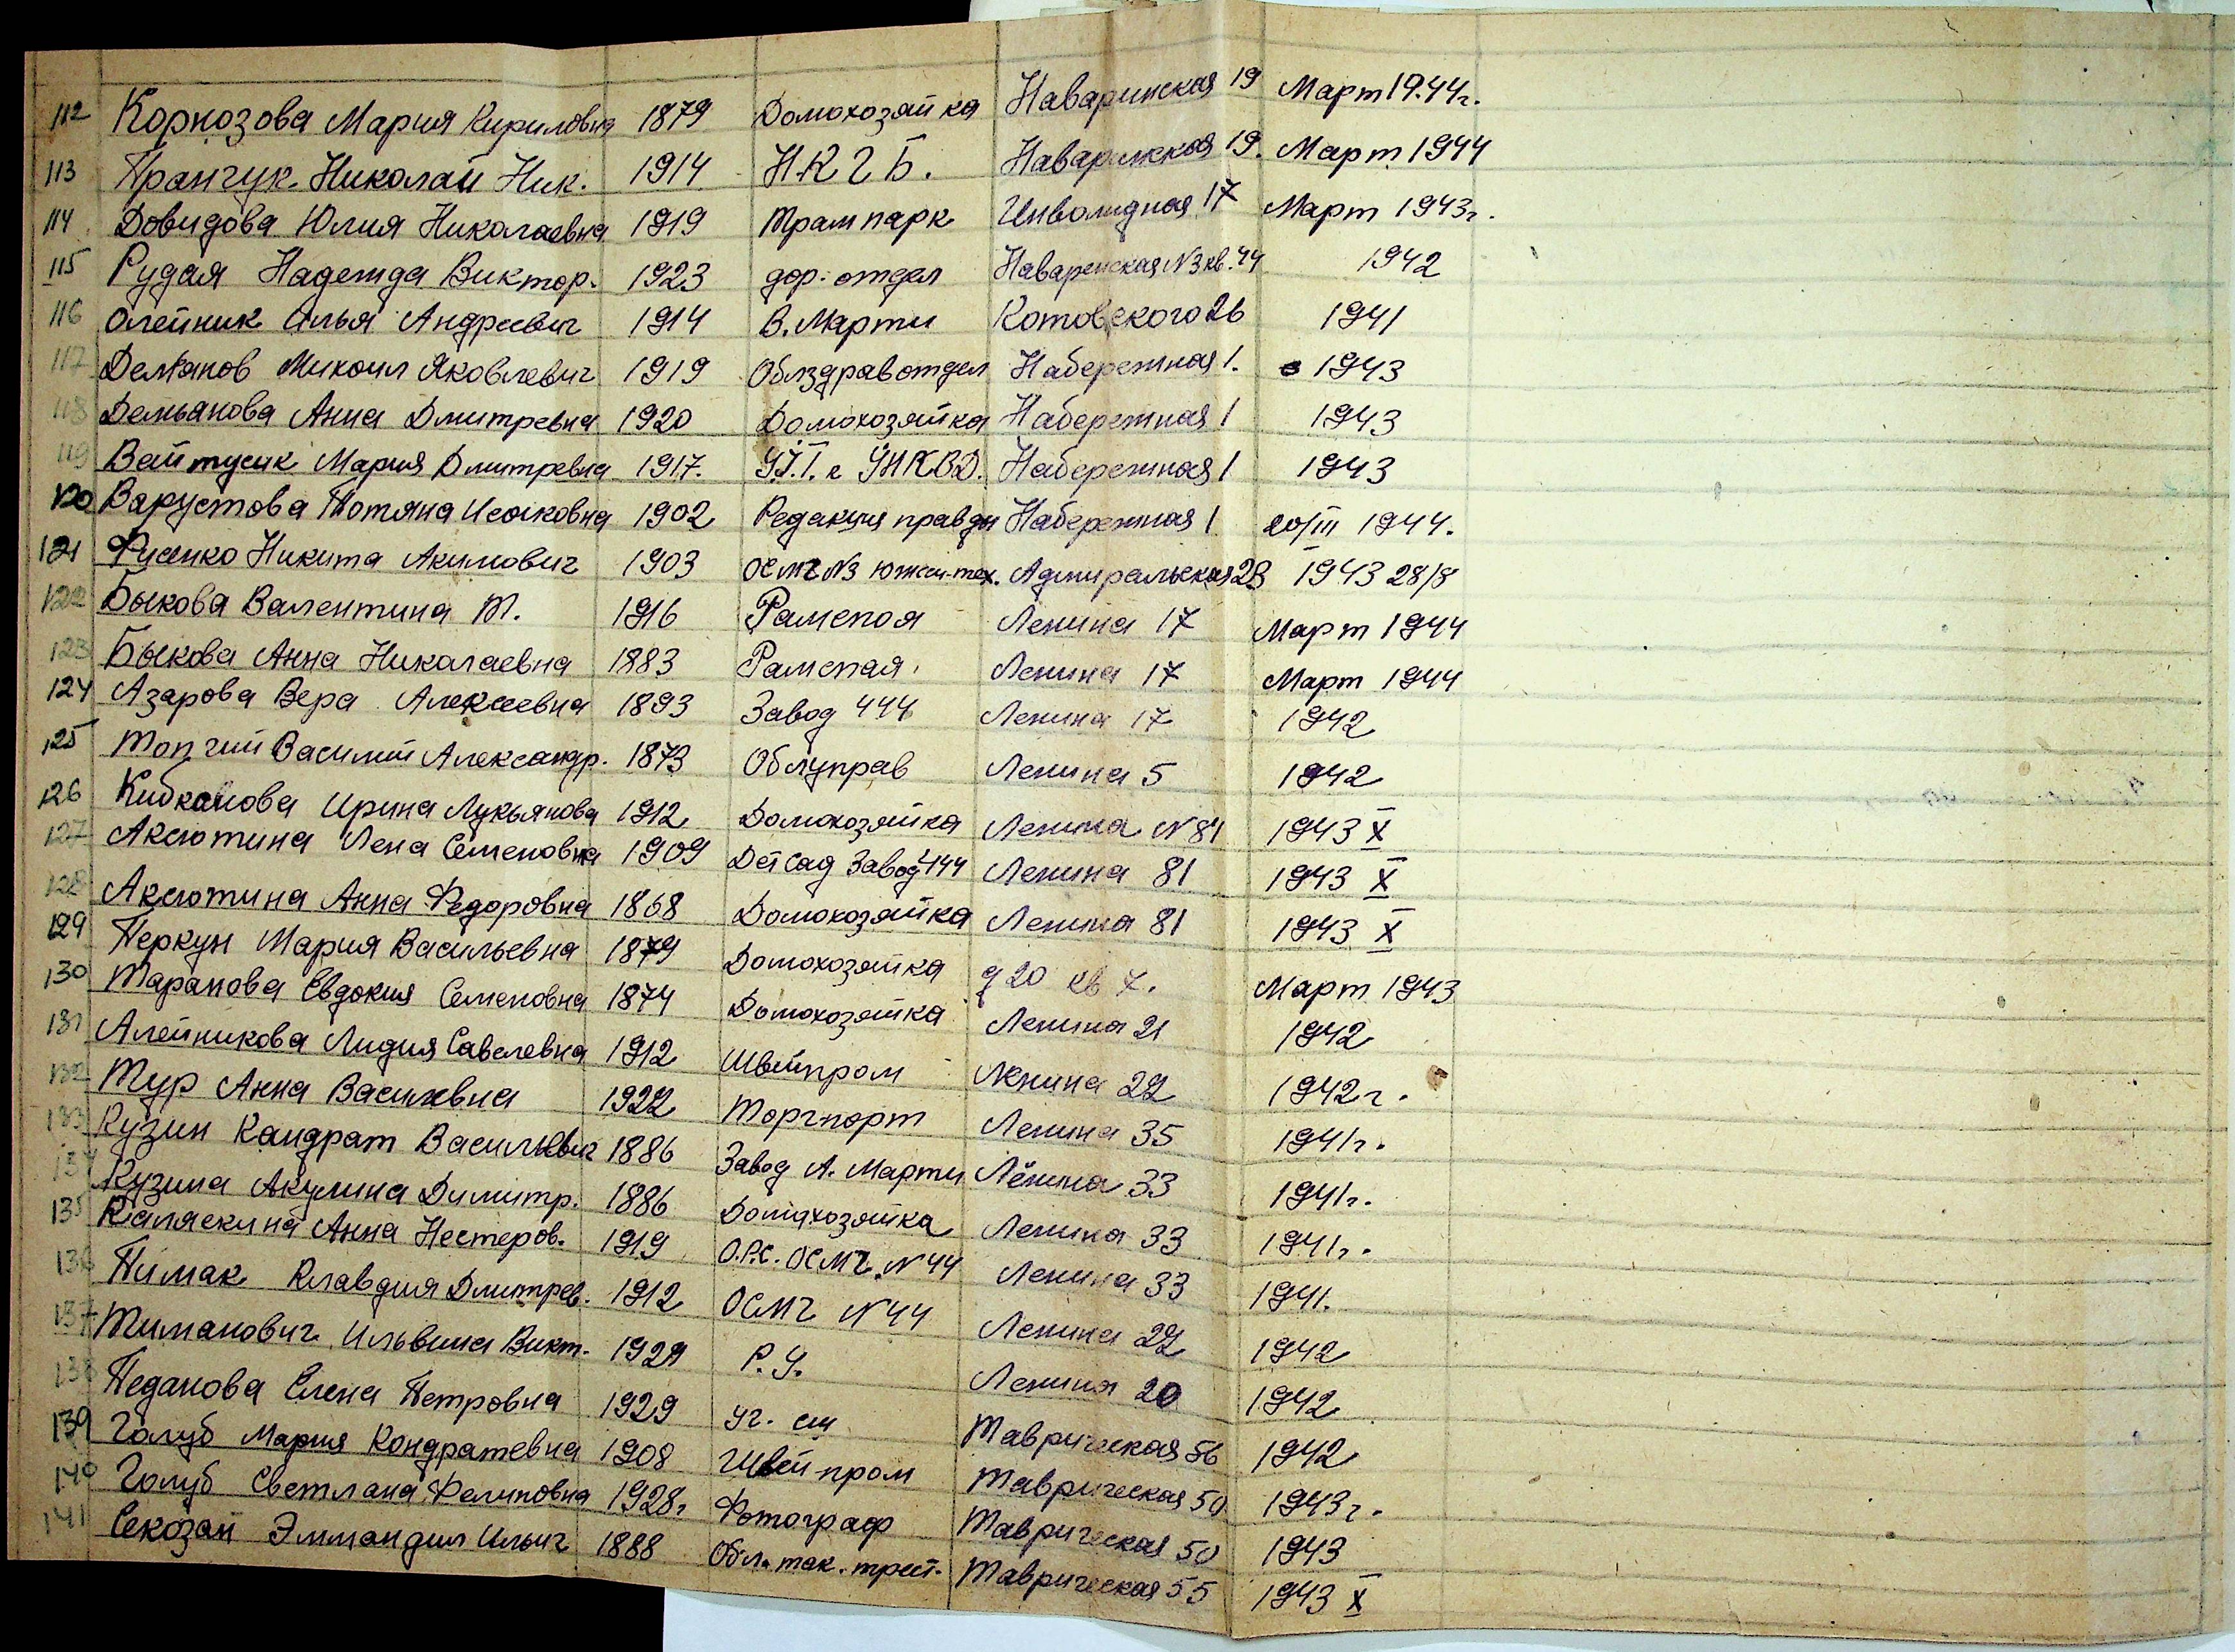 112 Корнозова Мария Кириловна 1879 Домохозяйка Наваринская 19 Март 19.44г.
113 Пранчук Николай Ник. 1914 Н.К.Г.Б. Наваринская 19. Март 1944
114 Довидова Юлия Николаевна 1919 Трампарк Инволидная 17 Март 1943г.
115 Рудая Надежда Виктор. 1923 дор. отдел Наваренская N3 кв. 44 1942
116 Олейник Илья Андреевич 1914 В. Марти Котовского 26 1941
117 Демянов Михаил Яковлевич 1919 Облздравотдел Набережная 1. 1943
118 Демьанова Анна Дмитревна 1920 Домохозяйка Набережная 1 1943
119 Вайтусик Мария Дмитревна 1917. УНКВД. Набережная 1 1943
120 Варустова Татяна Исаковна 1902 Редакция правды Набережная 1 20/III 1944.
121 Фусенко Никита Акимович 1903 ОСМЧ N3 Адмиральская 23 1943 28/8
122 Быкова Валентина Т. 1916 Ленина 17 Март 1944
123 Быкова Анна Николаевна 1883 Ленина 17 Март 1944
124 Азарова Вера Алексеевна 1893 Завод 444 Ленина 17 1942
125 Топчий Василий Александр. 1873 Облуправ Ленина 5 1942
126 Кибкалова Ирина Лукьянова 1912 Домохозяйка Ленина N 81 1943 X
127 Аксютина Лена Семеновна 1909 Детсад Завод 444 Ленина 81 1943 X
128 Аксютина Анна Федоровна 1868 Домохозяйка Ленина 81 1943 X
129 Перкун Мария Васильевна 1879 Домохозяйка д 20 кв 7. Март 1943
130 Таранова Евдокия Семеновна 1874 Домохозяйка Ленина 21 1942
131 Алейникова Лидия Савелевна 1912 Швейпром Ленина 22 1942г.
132 Тур Анна Василевна 1922 Торгпорт Ленина 35 1941г.
133 Кузин Кандрат Васильевич 1886 Завод А. Марти Ленина 33 1941г.
134 Кузина Акулина Димитр. 1886 Домохозяйка Ленина 33 1941г.
135 Каляскина Анна Нестеров. 1919 О.Р.С. ОСМЧ. N 44 Ленина 33 1941.
136 Пимак Клавдия Дмитрев. 1912 ОСМЧ N 44 Ленина 22 1942
137 Тиманович Ильвина Викт. 1929 Р.У. Ленина 20 1942
138 Педанова Елена Петровна 1929 Таврическая 56 1942
139 Голуб Мария Кондратевна 1908 Швейпром Таврическая 50 1943г.
140 Голуб Светлана Фелиповна 1928г Фотограф Таврическая 50 1943
141 Секозан Эммандил Ильич 1888 Таврическая 55 1943 X